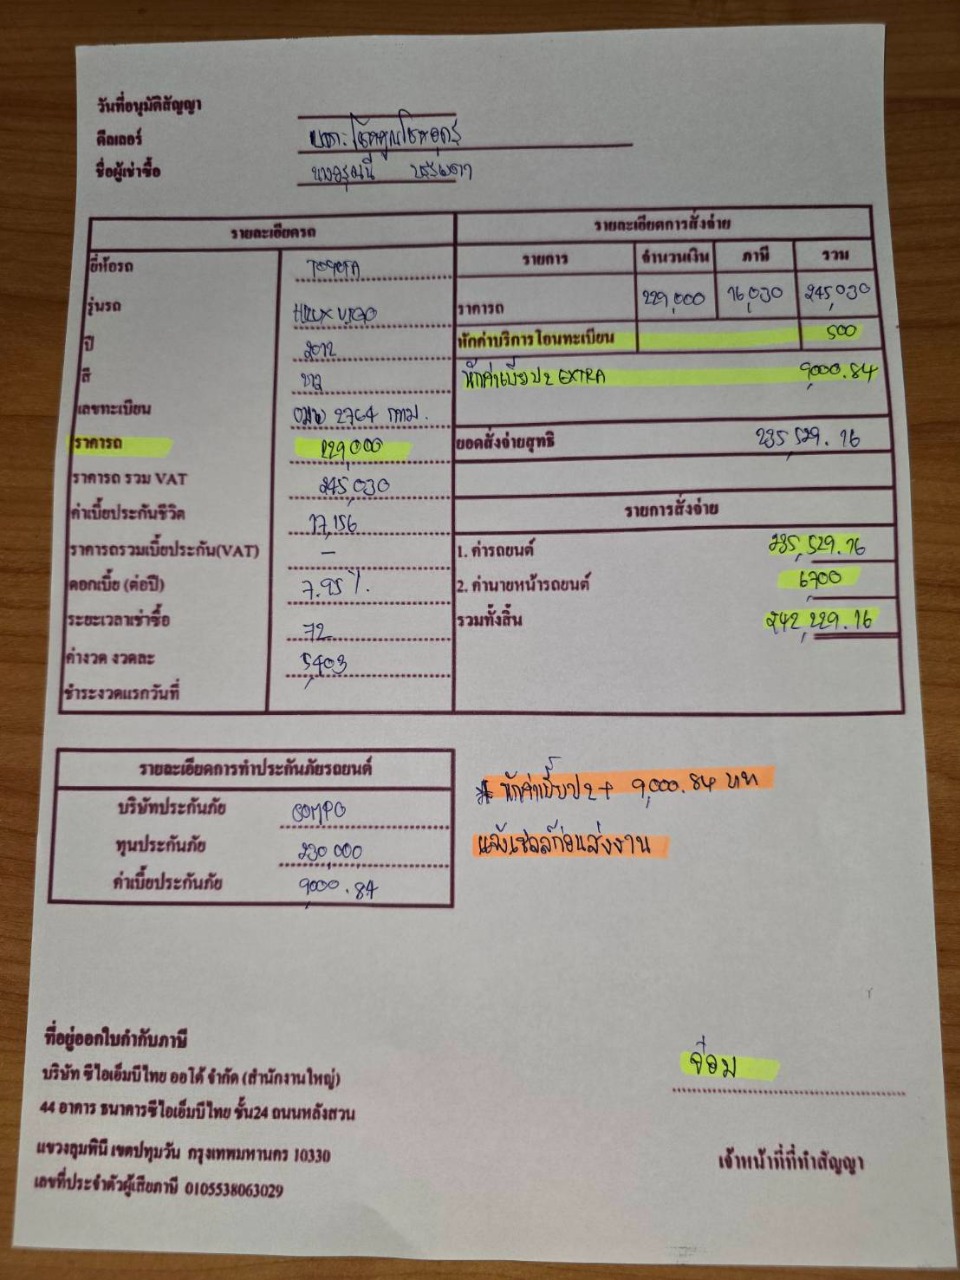 วันที่อนุมัติสัญญา
ดีลเลอร์
ชื่อผู้เช่าซื้อ
รายละเอียดรถ
ยี่ห้อรถ TOYOTA
รุ่นรถ HILUX VIGO
ปี 2012
สี ขาว
เลขทะเบียน 2764 กทม.
ราคารถ 229,000
ราคารถ รวม VAT 245,030
ค่าเบี้ยประกันชีวิต 17,156
ราคารถรวมเบี้ยประกัน(VAT) –
ดอกเบี้ย (ต่อปี) 7.95%.
ระยะเวลาเช่าซื้อ 72
ค่างวด งวดละ 5,403
ชำระงวดแรกวันที่
รายละเอียดการสั่งจ่าย
รายการ จำนวนเงิน ภาษี รวม
ราคารถ 229,000 16,030 245,030
หักค่าบริการโอนทะเบียน 500
หักค่าเบี้ย ป2 EXTRA 9,000.84
ยอดสั่งจ่ายสุทธิ 235,529.16
รายการสั่งจ่าย
1. ค่ารถยนต์ 235,529.16
2. ค่านายหน้ารถยนต์ 6,700
รวมทั้งสิ้น 242,229.16
รายละเอียดการทำประกันภัยรถยนต์
บริษัทประกันภัย SOMPO
ทุนประกันภัย 230,000
ค่าเบี้ยประกันภัย 9,000.84
* หักค่าเบี้ย ป2+ 9,000.84 บาท
แจ้งเซลล์ก่อนส่งงาน
ที่อยู่ออกใบกำกับภาษี
บริษัท ซีไอเอ็มบีไทย ออโต้ จำกัด (สำนักงานใหญ่)
44 อาคาร ธนาคารซีไอเอ็มบีไทย ชั้น24 ถนนหลังสวน
แขวงลุมพินี เขตปทุมวัน กรุงเทพมหานคร 10330
เลขที่ประจำตัวผู้เสียภาษี 0105538063029
จ๋อม
เจ้าหน้าที่ที่ทำสัญญา